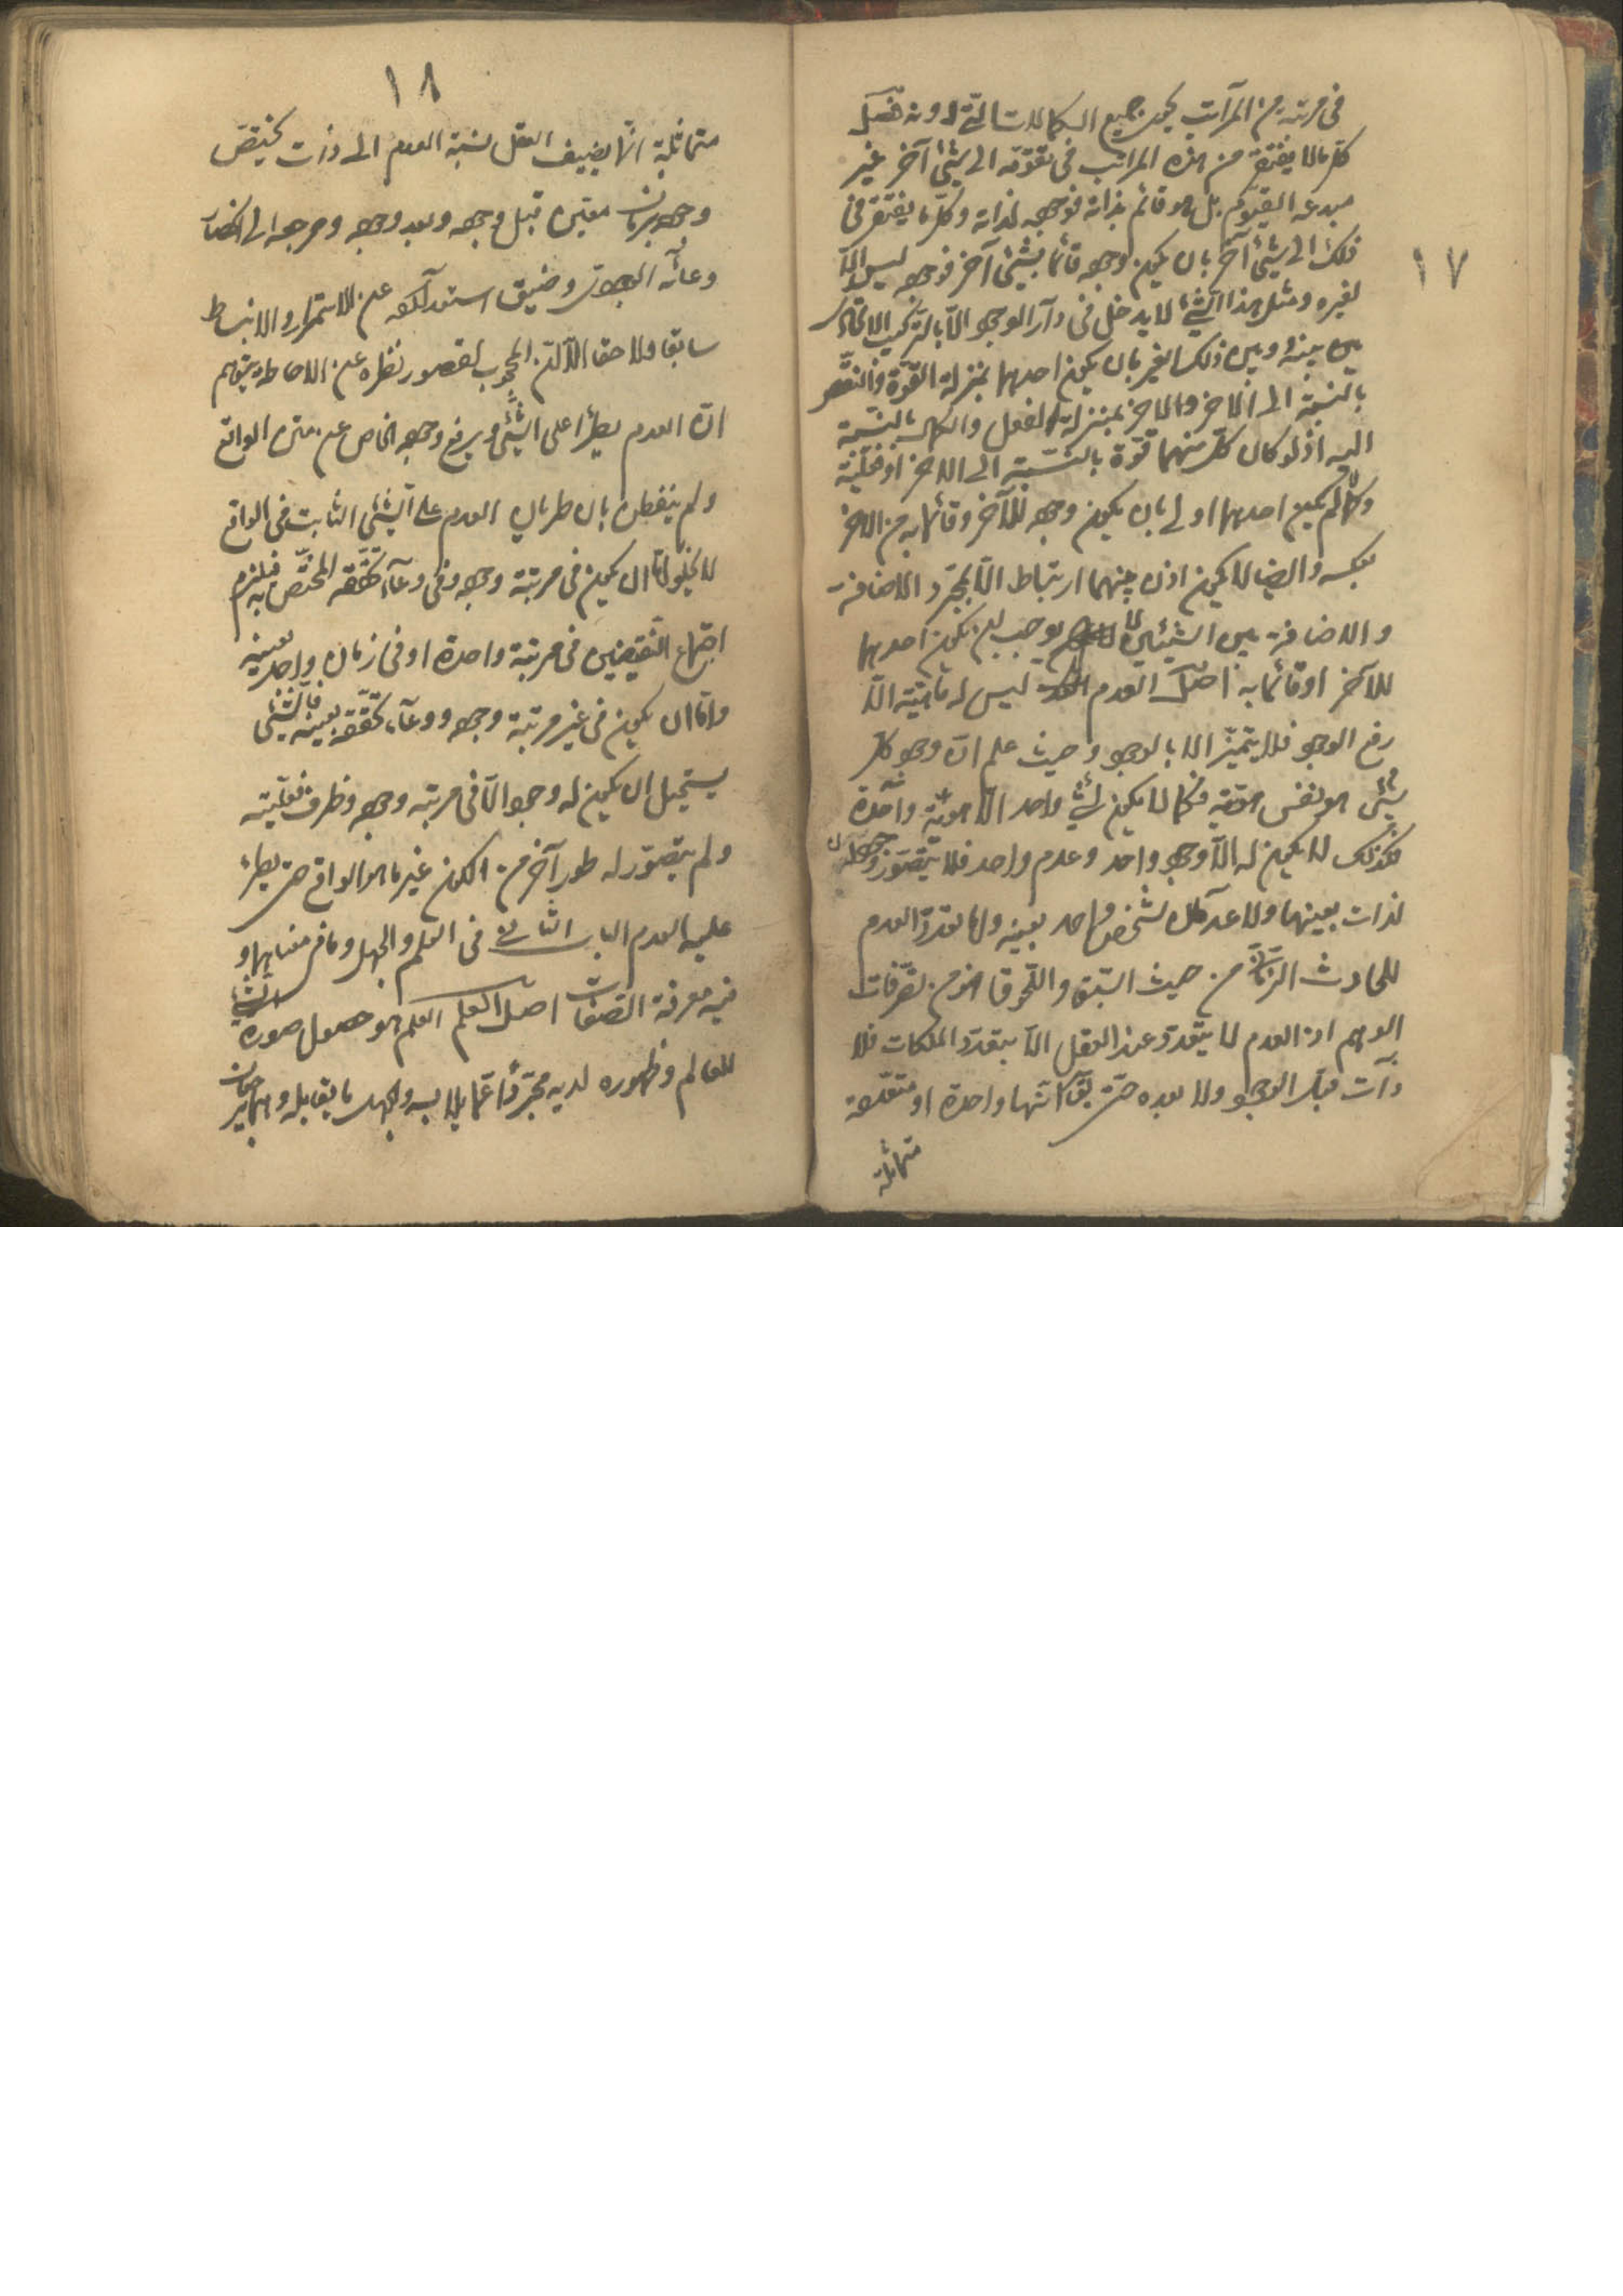 ١٧
في مرتبة من المراتب يحيط بجميع الكمالات التي دونه فصل
كل ما لا يفتقر من هذه المراتب في تقومه الى شئ آخر غير
مبدعه القيوم بل هو قائم بذاته فوجوده لذاته وكل ما يفتقر في
ذلك الى شئ آخر بان يكون وجوده قائما بشئ آخر فوجوده ليس الا
لغيره ومثل هذا الشئ لا يدخل في دار الوجود الا بالتركيب الاتحادى
بينه وبين ذلك الغير بان يكون احدهما بمنزلة القوة والنقص
بالنسبة الى الآخر والآخر بمنزلة الفعل والكمال بالنسبة
اليه اذ لو كان كل منهما قوة بالنسبة الى الآخر او فعلية
وكمالا لم يكن احدهما اولى بان يكون وجوده للآخر وقائما به من الآخر
بعكسه وايضا لا يكون اذن بينهما ارتباط الا بمجرد الاضافة
والاضافة بين الشيئين لا يوجب ان يكون احدهما
للآخر او قائما به اصل العدم ليس له ماهية الا
رفع الوجود فلا يتميز الا بالوجود وحيث علم ان وجود كل
شئ هو نفس هويته فكما لا يكون لشئ واحد الا هوية واحدة
فكذلك لا يكون له الا وجود واحد وعدم واحد فلا يتصور وجودان
لذات بعينها ولا عدمان لشخص واحد بعينه وانما تعدد العدم
للحادث الزمانى من حيث السبق واللحوق انما هو من تصرفات
الوهم اذ العدم لا يتعدد عند العقل الا بتعدد الملكات فلا
ذات قبل الوجود ولا بعده حتى يقال انها واحدة او متعددة
متماثلة
١٨
متماثلة انما يضيف العقل نسبة العدم الى ذات يختص
وجودها بزمان معين قبل وجوده وبعد وجوده ومرجعه الى انحصار
وعائه الوجودى وضيق استعداده عن الاستمرار والانبساط
سابقا ولاحقا الا ان المحجوب لقصور نظره عن الاحاطة يتوهم
ان العدم يطرأ على الشئ ويرفع وجوده الخاص عن متن الواقع
ولم يتفطن بان طريان العدم على الشئ الثابت في الواقع
لا يخلو اما ان يكون في مرتبة وجوده وفي وعاء تحققه المختص به فيلزم
اجتماع النقيضين في مرتبة واحدة او في زمان واحد بعينه
واما ان يكون في غير مرتبة وجوده ووعاء تحققه بعينه فالشئ
يستحيل ان يكون له وجود الا في مرتبة وجوده وظرف فعليته
ولم يتصور له طور آخر من الكون غير ما هو الواقع حتى يطرء
عليه العدم الباب الثانى في العلم والجهل وما في معناهما و
فيه معرفة الصفات اصل العلم العلم هو حصول صورة الشئ
للعالم وظهوره لديه مجردا عما يلابسه والجهل ما يقابله وهما يرجعان